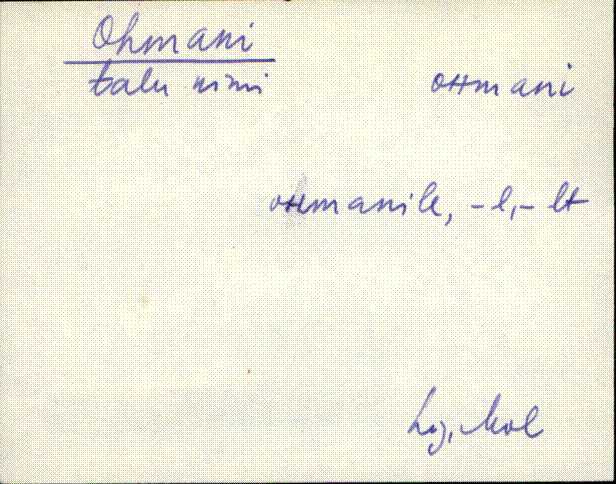 Ohmani
talu nimi oHmani
oHmanile, -l, -lt